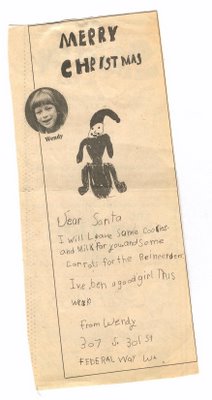 MERRY
CHRISTMAS
Wendy
Dear Santa
I will Leave Some Cookies
and Milk for you and Some
Carrots for the Reineerdeer.
I've ben a good girl This
week
From Wendy
307 S 301 St
FEDERAL Way Wa.